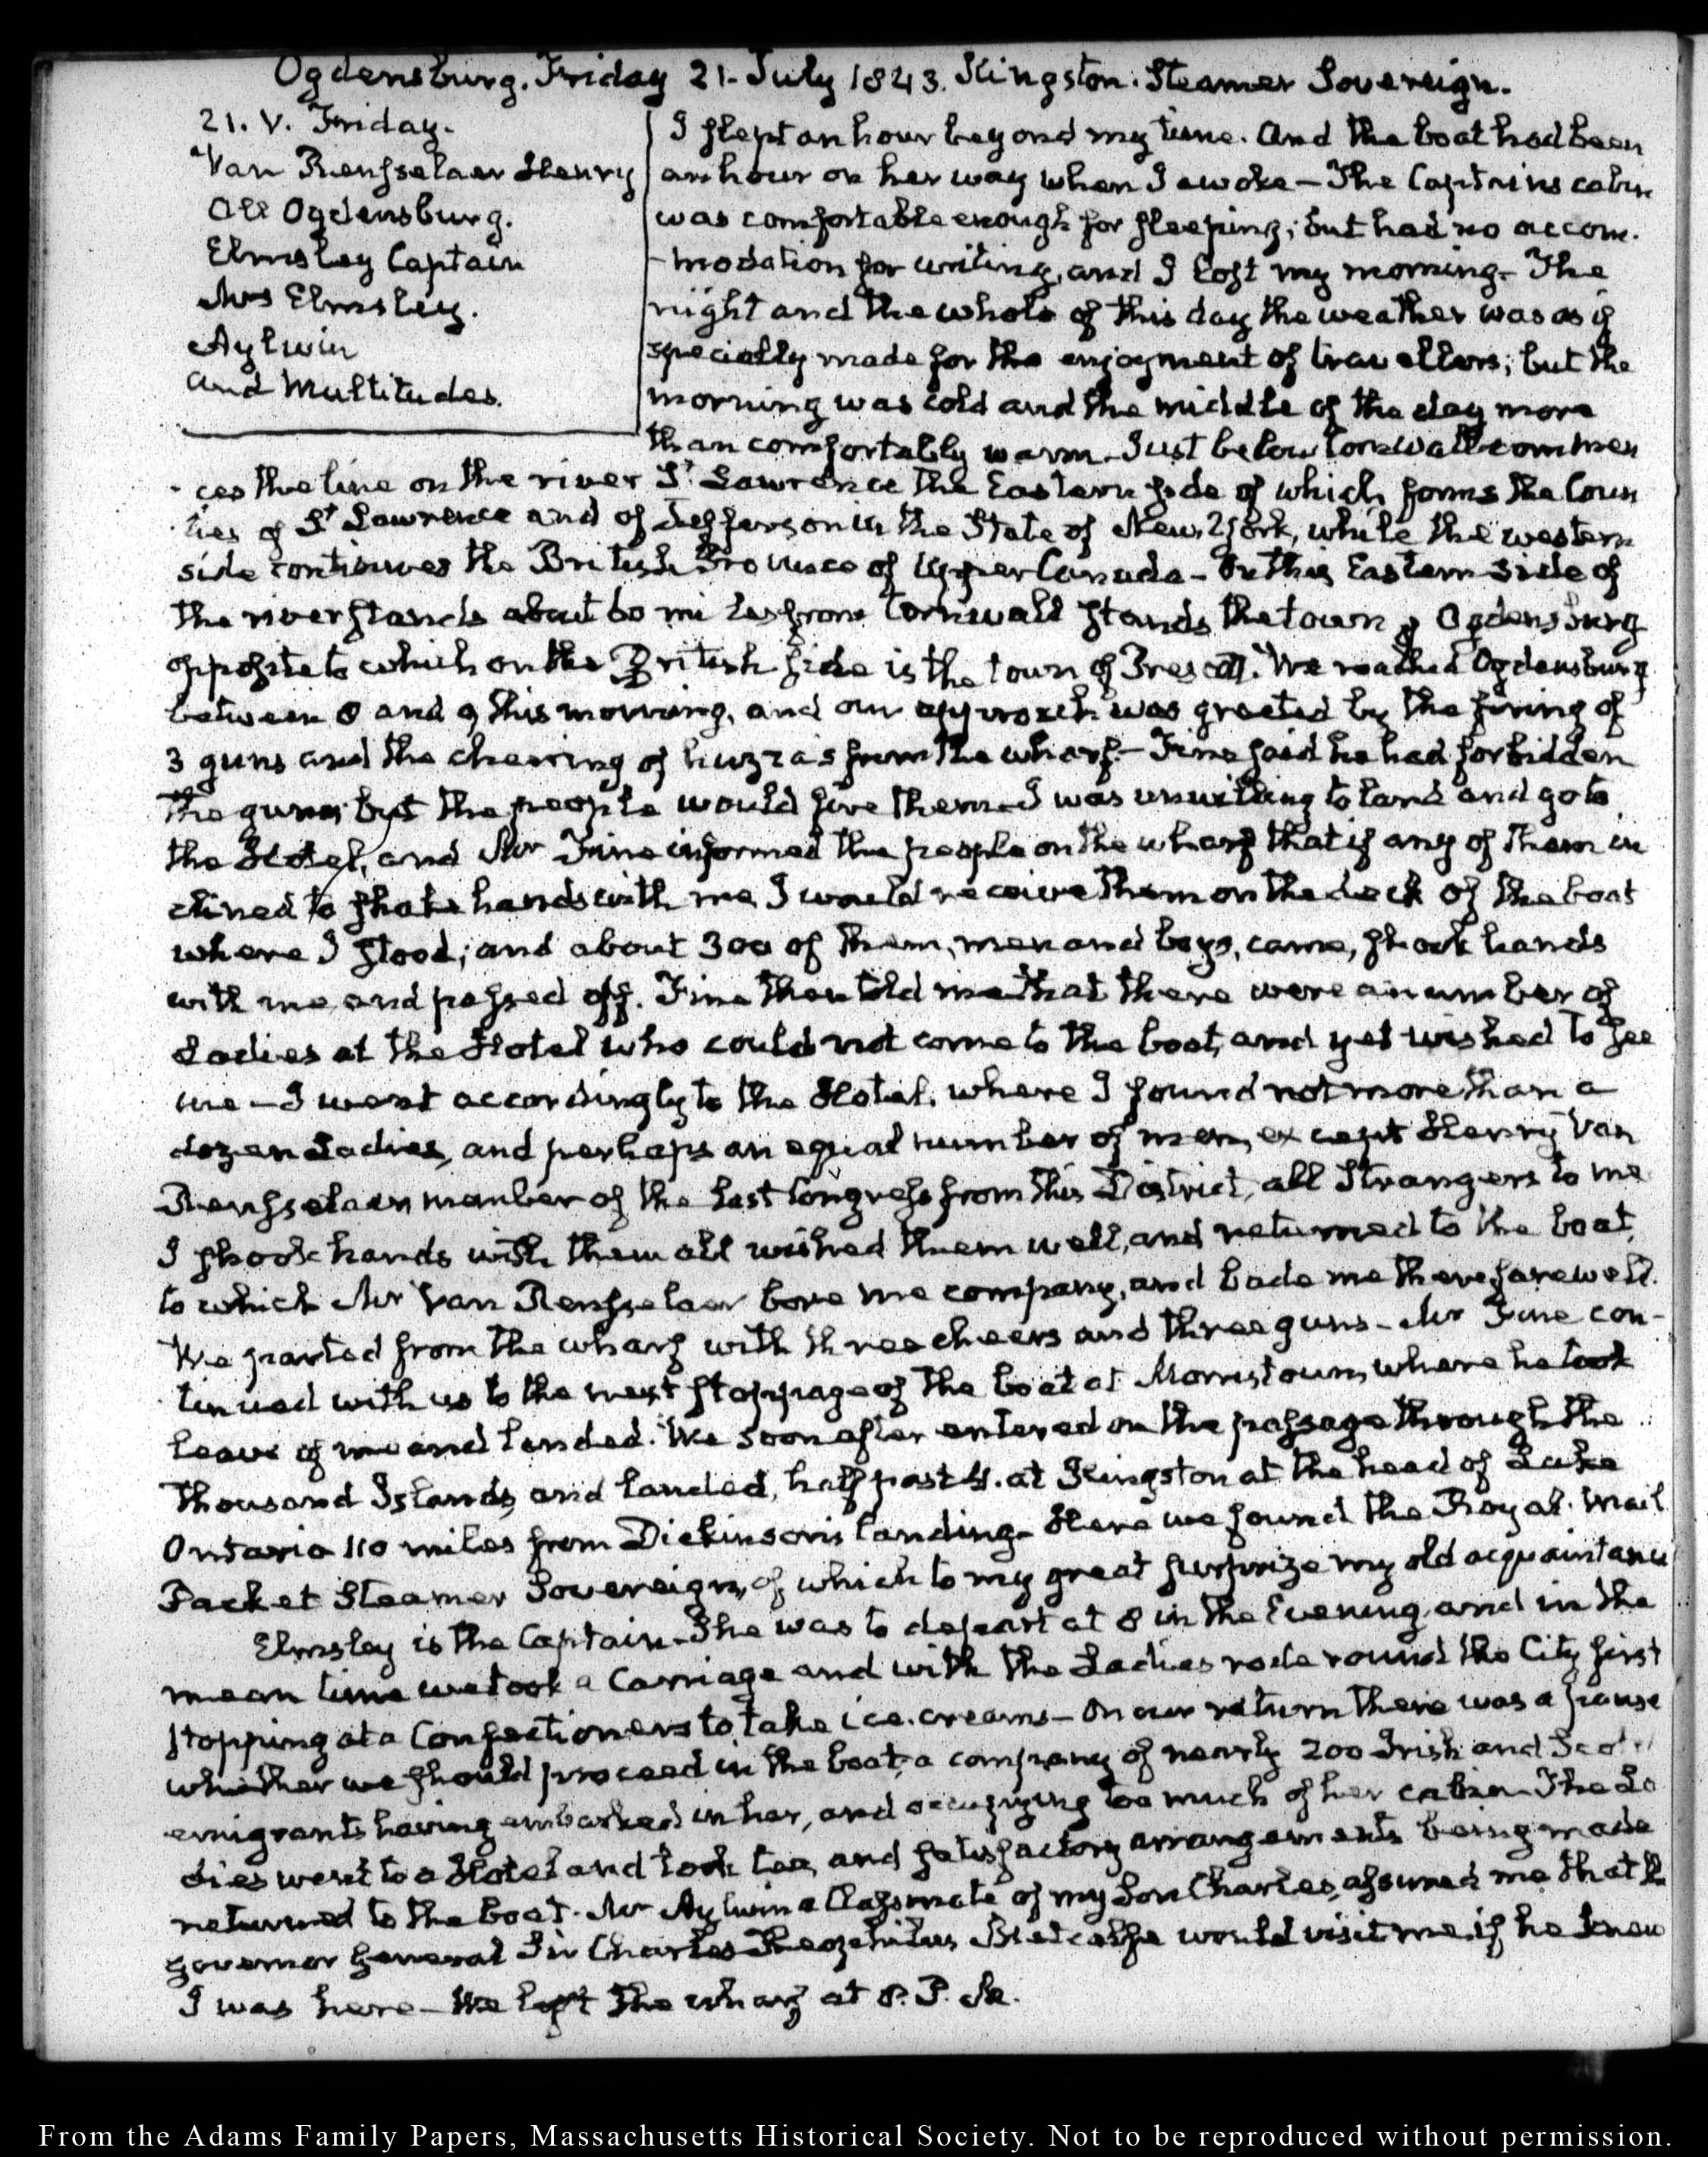 Ogdensburg. Friday 21. July 1843. Kingston. Steamer Sovereign.
21. V. Friday.
Van Rensselaer Henry
All Ogdensburg.
Elmsley Captain
Mrs Elmsley.
Aylwin
and Multitudes.
I slept an hour beyond my time. And the boat had been
an hour on her way when I awoke — The Captains cabin
was comfortable enough for sleeping; but had no accom-
-modation for writing, and I lost my morning. The
night and the whole of this day the weather was as if
specially made for the enjoyment of travellers; but the
morning was cold and the middle of the day more
than comfortably warm. Just below Cornwall commen
ces the line on the river St Lawrence the Eastern side of which forms the Coun
ties of St Lawrence and of Jefferson in the State of New York, while the western
side continues the British Province of Upper Canada — On this Eastern side of
the river stands about 60 miles from Cornwall stands the town of Ogdensburg
opposite to which on the British side is the town of Prescott. We reached Ogdensburg
between 8 and 9 this morning, and our approach was greeted by the firing of
3 guns and the cheering of huzzas from the wharf — Fine said he had forbidden
the guns; but the people would fire them — I was unwilling to land and go to
the Hotel, and Mr Fine informed the people on the wharf that if any of them in
clined to shake hands with me, I would receive them on the deck of the boat
where I stood; and about 300 of them, men and boys, came, shook hands
with me and passed off. Fine then told me that there were a number of
Ladies at the Hotel who could not come to the boat, and yet wished to see
me — I went accordingly to the Hotel, where I found not more than a
dozen Ladies, and perhaps an equal number of men, except Henry Van
Rensselaer member of the last Congress from this District, all Strangers to me
I shook hands with them all wished them well, and returned to the boat,
to which Mr Van Rensselaer bore me company, and bade me there farewell.
We parted from the wharf with three cheers and three guns — Mr Fine con-
tinued with us to the next stoppage of the boat at Morristown, where he took
leave of me and landed. We soon after entered on the passage through the
Thousand Islands, and landed, half past 4. at Kingston at the head of Lake
Ontario 110 miles from Dickinson's landing — Here we found the Royal Mail
Packet Steamer Sovereign, of which to my great surprize my old acquaintance
Elmsley is the Captain — She was to depart at 8 in the Evening, and in the
mean time we took a Carriage and with the Ladies rode round the City, first
stopping at a Confectioners to take ice.creams — On our return there was a pause
whether we should proceed in the boat, a company of nearly 200 Irish and
emigrants having embarked in her, and occupying too much of her cabin — The La
dies went to a Hotel and took tea, and satisfactory arrangements being made
returned to the boat. Mr Aylwin a Classmate of my Son Charles, assured me that the
governor General Sir Charles Theophilus Metcalfe would visit me, if he knew
I was here — We left the wharf at 8. P. M.
From the Adams Family Papers, Massachusetts Historical Society. Not to be reproduced without permission.